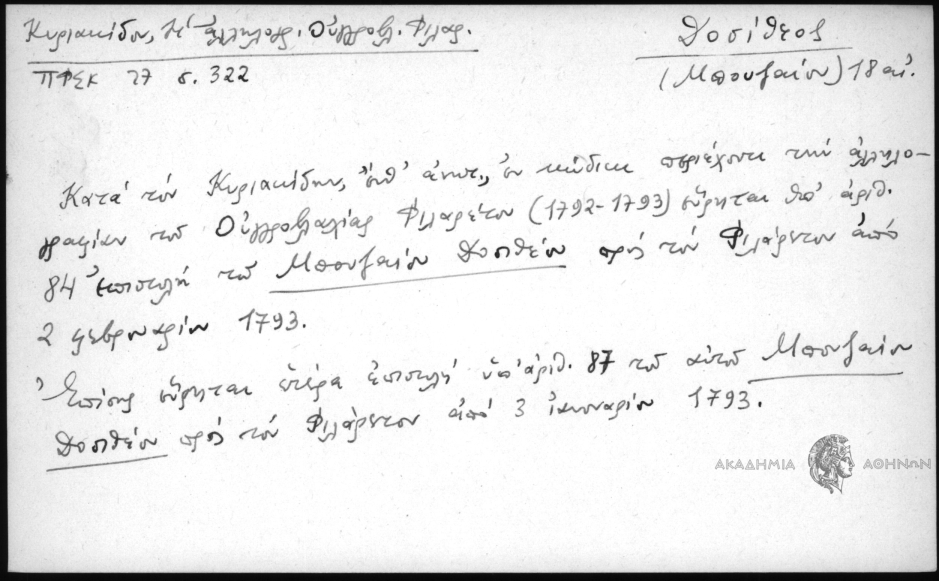 Κυριακίδου, Ἡ ἀλληλογρ. Οὐγγροβλ. Φιλαρ.
ΠΦΣΚ 27 σ. 322
Δοσίθεος
(Μπουζαίου) 18 αἰ.
Κατά τόν Κυριακίδην, ἔνθ' ἀνωτ., ἐν κώδικι περιέχοντι τήν ἀλληλο-
γραφίαν τοῦ Οὐγγροβλαχίας Φιλαρέτου (1792-1793) εὕρηται ὑπ' ἀριθ.
84 ἐπιστολή τοῦ Μπουζαίου Δοσιθέου πρός τόν Φιλάρετον ἀπό
2 φεβρουαρίου 1793.
Ἐπίσης εὕρηται ἑτέρα ἐπιστολή ὑπ' ἀριθ. 87 τοῦ αὐτοῦ Μπουζαίου
Δοσιθέου πρός τόν Φιλάρετον ἀπό 3 ἰανουαρίου 1793.
ΑΚΑΔΗΜΙΑ ΑΘΗΝΩΝ